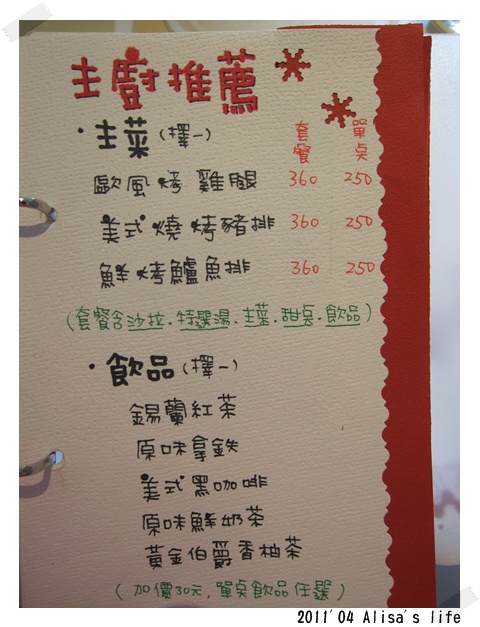 主廚推薦
・主菜(擇一) 套餐 單點
歐風烤雞腿 360 250
美式燒烤豬排 360 250
鮮烤鱸魚排 360 250
(套餐含沙拉.特選湯.主菜.甜點.飲品)
・飲品(擇一)
錫蘭紅茶
原味拿鉄
美式黑咖啡
原味鮮奶茶
黃金伯爵香柚茶
(加價30元,單點飲品任選)
2011'04 Alisa's life